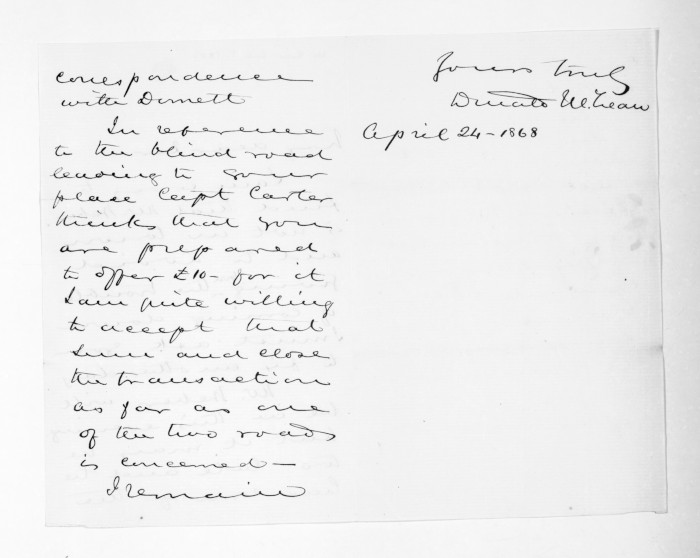 correspondence
with Dinnett
In reference
to the blind road
leading to your
place Capt Carter
thinks that you
are prepared
to offer £10- for it
I am quite willing
to accept that
sum and close
the transaction
as far as one
of the two roads
is concerned—
I remain
Yours truly
McLean
April 24-1868